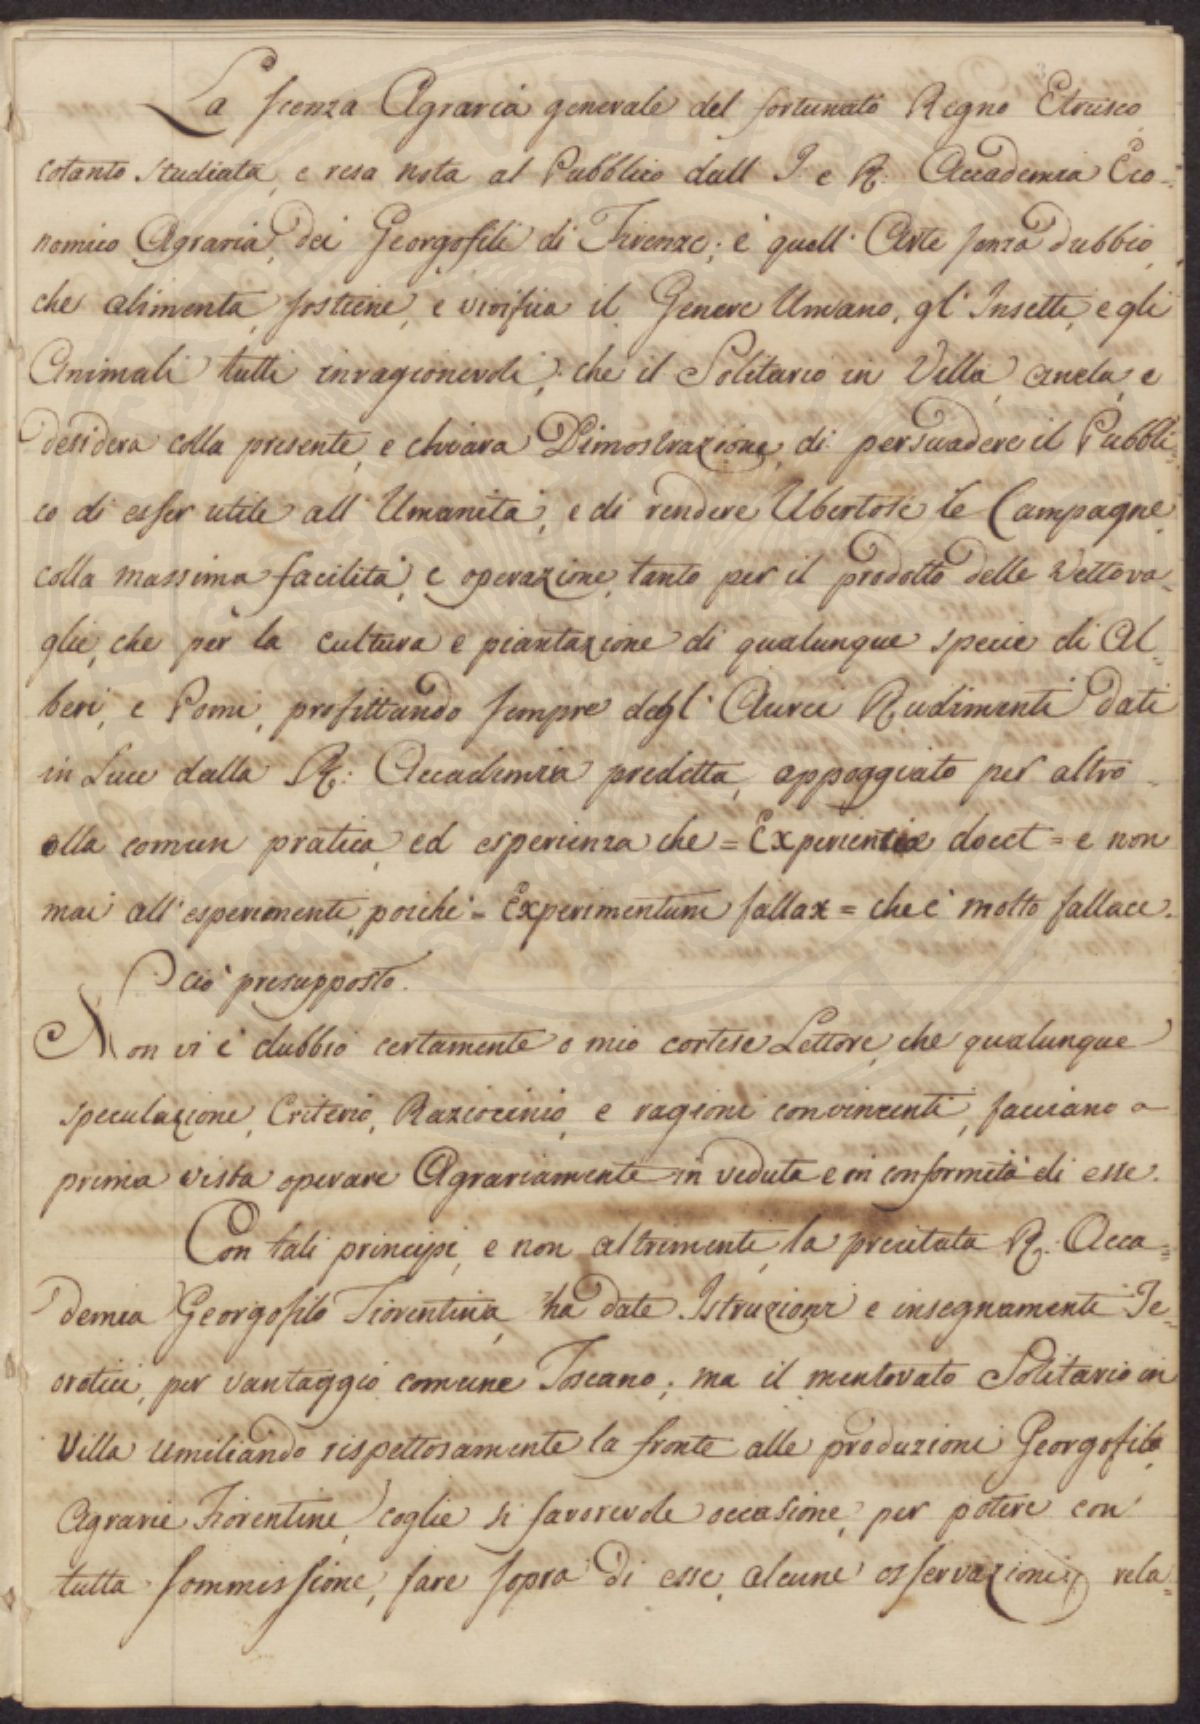 La scenza Agraria generale del fortunato Regno Etrusco,
cotanto studiata, e resa nota al Pubblico dall I. e R. Accademia Eco=
nomico Agraria, dei Georgofili di Firenze; è quell' Arte senza dubbio,
che alimenta, sostiene, e vivifica il Genere Umano, gl' Insetti, e gli
Animali tutti inragionevoli; che il Solitario in Villa, anela, e
desidera colla presente, e chiara Dimostrazione, di persuadere il Pubbli=
co di esser utile all' Umanità, e di rendere Ubertose le Campagne,
colla massima facilità, e operazione, tanto per il prodotto delle Vettova=
glie, che per la cultura e piantazione di qualunque specie di Al=
beri, e Pomi, profittando sempre degl' Aurei Rudimenti dati
in Luce dalla R: Accademia predetta, appoggiato per altro
alla comun pratica, ed esperienza che = Experientia docet = e non
mai all' esperimenti, poichè = Experimentum fallax = che è molto fallace.
Ciò presupposto.
Non vi è dubbio certamente o mio cortese Lettore, che qualunque
speculazione, Criterio, Raziocinio, e ragioni convincenti, facciano a
prima vista operare Agrariamente in veduta e in conformità di esse.
Con tali principj, e non altrimenti, la precitata R. Acca=
demia Georgofilo Fiorentina, ha date Istruzioni e insegnamenti Te=
oretici, per vantaggio comune Toscano; ma il mentovato Solitario in
Villa umiliando rispettosamente la fronte alle produzioni Georgofile,
Agrarie Fiorentine, coglie si favorevole occasione, per potere con
tutta sommissione, fare sopra di esse, alcune osservazioni, rela=